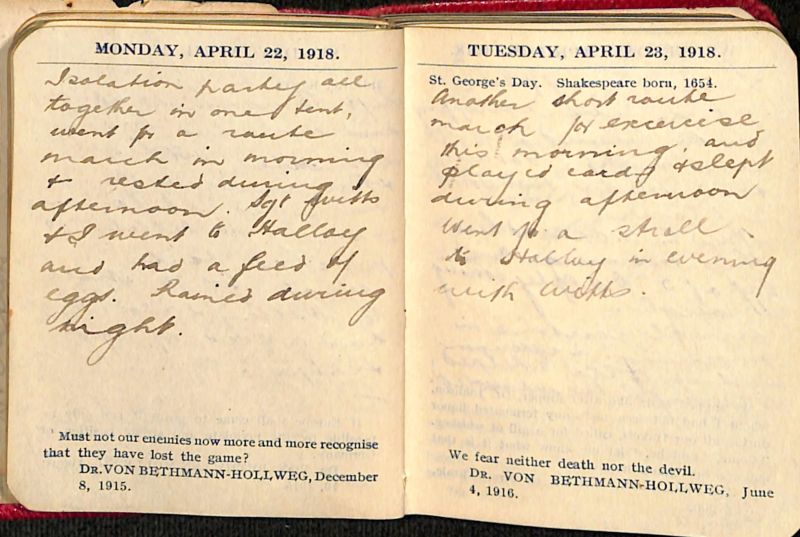 MONDAY, APRIL 22, 1918.
Isolation party all
together in one tent,
went for a route
march in morning
& rested during
afternoon. Sgt Witts
& I went to Halloy
and had a feed of
eggs. Rained during
night.
Must not our enemies now more and more recognise
that they have lost the game?
DR. VON BETHMANN-HOLLWEG, December
8, 1915.
TUESDAY, APRIL 23, 1918.
St. George's Day. Shakespeare born, 1654.
Another short route
march for excercise
this morning, and
played cards & slept
during afternoon
Went for a stroll
to Halloy in evening
with Witts.
We fear neither death nor the devil.
DR. VON BETHMANN-HOLLWEG, June
4, 1916.